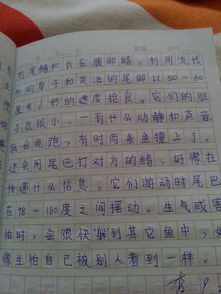 的尾鳍和长在腹部鳍，利用流线
形的身子和灵活的尾部以50～60
厘米/秒的速度抢食。它们的胆
子也很小，一有什么动静和声音
就会逃跑，有时两条鱼撞上了，
还会用尾巴打对方的鳍，好像在
传递什么信息。它们游动时尾巴
在98～180度之间摆动。生气或害
怕时，会很快躲到其它鱼中，好
像生怕自己被别人看到一样。